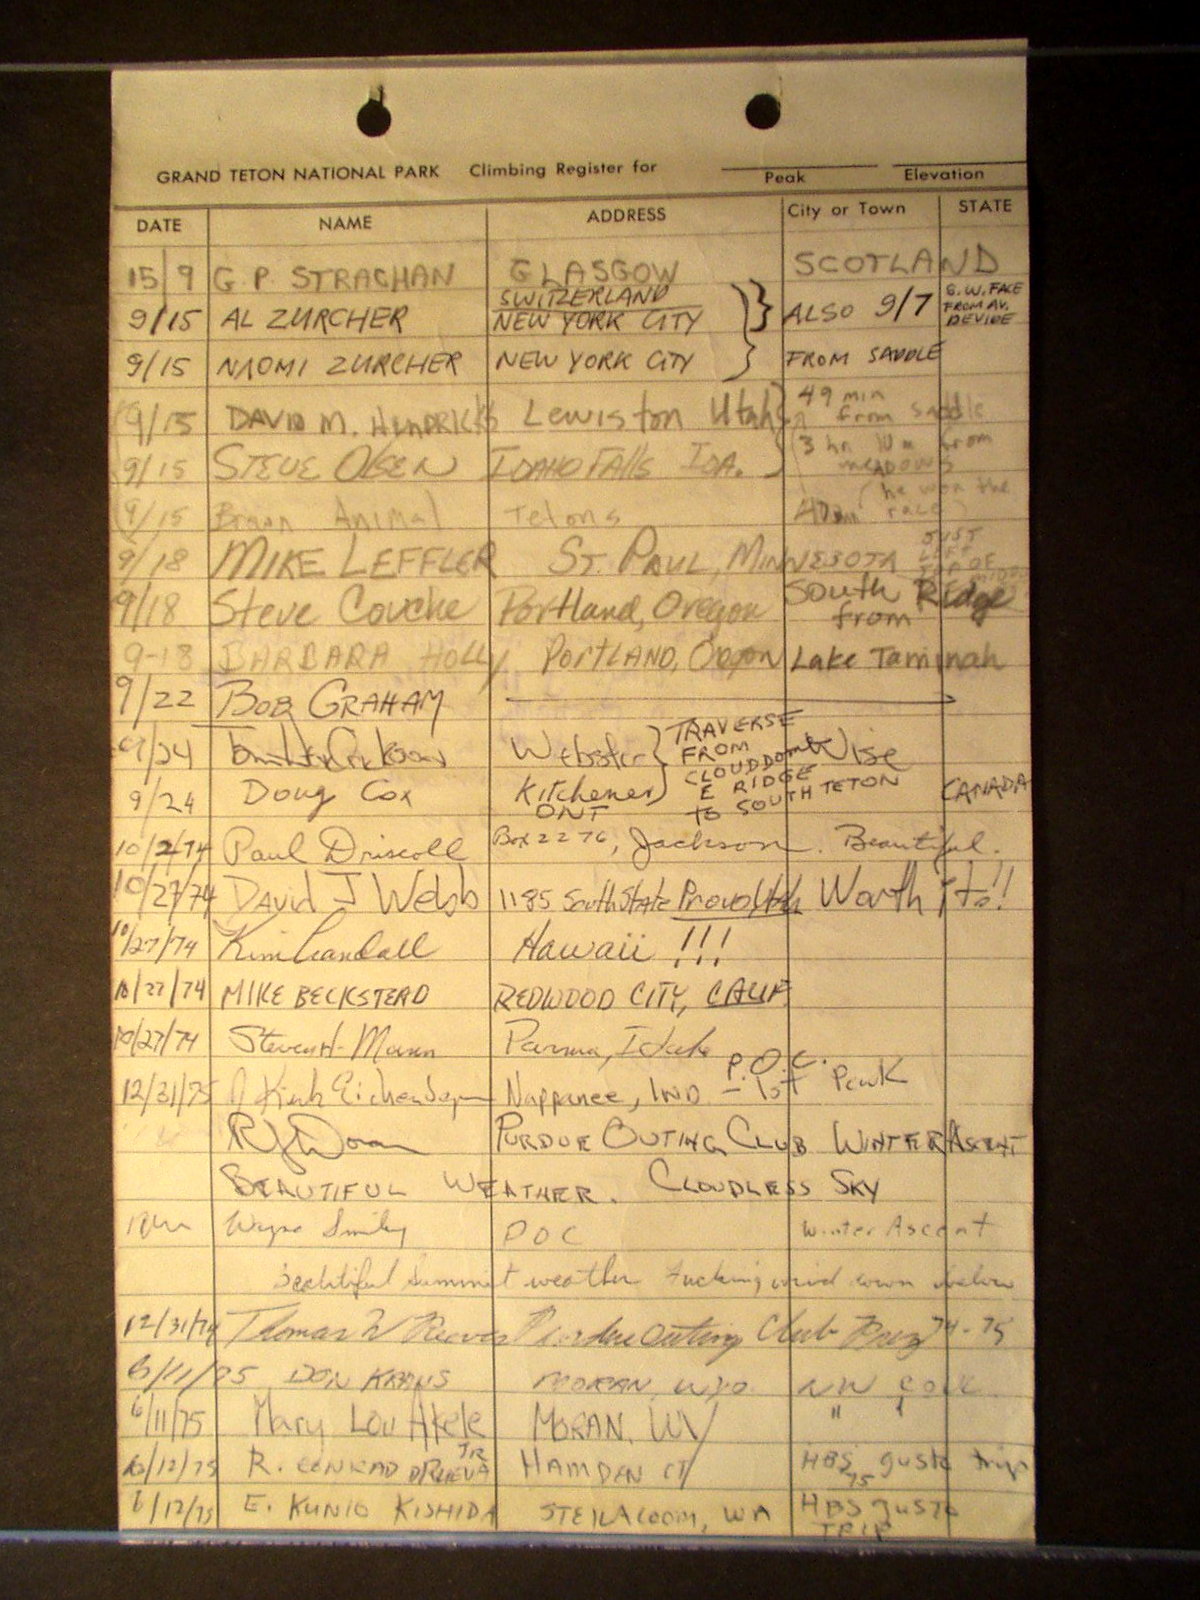 GRAND TETON NATIONAL PARK Climbing Register for Peak Elevation
DATE NAME ADDRESS City or Town STATE
15/9 G. P. STRACHAN GLASGOW SCOTLAND
9/15 AL ZURCHER SWITZERLAND NEW YORK CITY ALSO 9/7 S.W. FACE FROM AV. DEVIDE
9/15 NAOMI ZURCHER NEW YORK CITY FROM SADDLE
9/15 DAVID M. HENDRICKS Lewiston Utah 49 min from saddle
9/15 STEVE OLSEN IDAHO FALLS IDA. (3 hr 10 m from meadows
9/15 Brian Animal Tetons 47 min (he won the race)
9/18 MIKE LEFFLER ST. PAUL, MINNESOTA JUST LEFT OF
9/18 Steve Couche Portland, Oregon South Ridge from
9-18 BARBARA HOLLY PORTLAND, Oregon Lake Taminah
9/22 BOB GRAHAM
9/24 Webster Wise
9/24 Doug Cox Kitchener ONT CANADA
TRAVERSE FROM CLOUDDOME E RIDGE to SOUTH TETON
10/2/74 Paul Driscoll Box 2276, Jackson. Beautiful.
10/27/74 David J Webb 1185 South State Provo, Utah Worth it!!
10/27/74 Kim Crandall Hawaii !!!
10/27/74 MIKE BECKSTEAD REDWOOD CITY, CALIF
10/27/74 Steven H. Mann Parma, Idaho
12/31/75 Kirk Nappanee, IND P.O.C. - 1st Peak
PURDUE OUTING CLUB WINTER ASCENT
BEAUTIFUL WEATHER. CLOUDLESS SKY
Wayne Smiley POC Winter Ascent
beautiful summit weather fucking wind down below
12/31/74 Thomas W Reeves Purdue Outing Club Prez 74-75
6/11/75 DON KRAUS MORAN, WYO. NW COUL.
6/11/75 Mary Lou Akele MORAN, WY " "
6/12/75 R. CONRAD JR HAMDEN CT HBS gusto trip 75
6/12/75 E. KUNIO KISHIDA STEILACOOM, WA HBS gusto TRIP